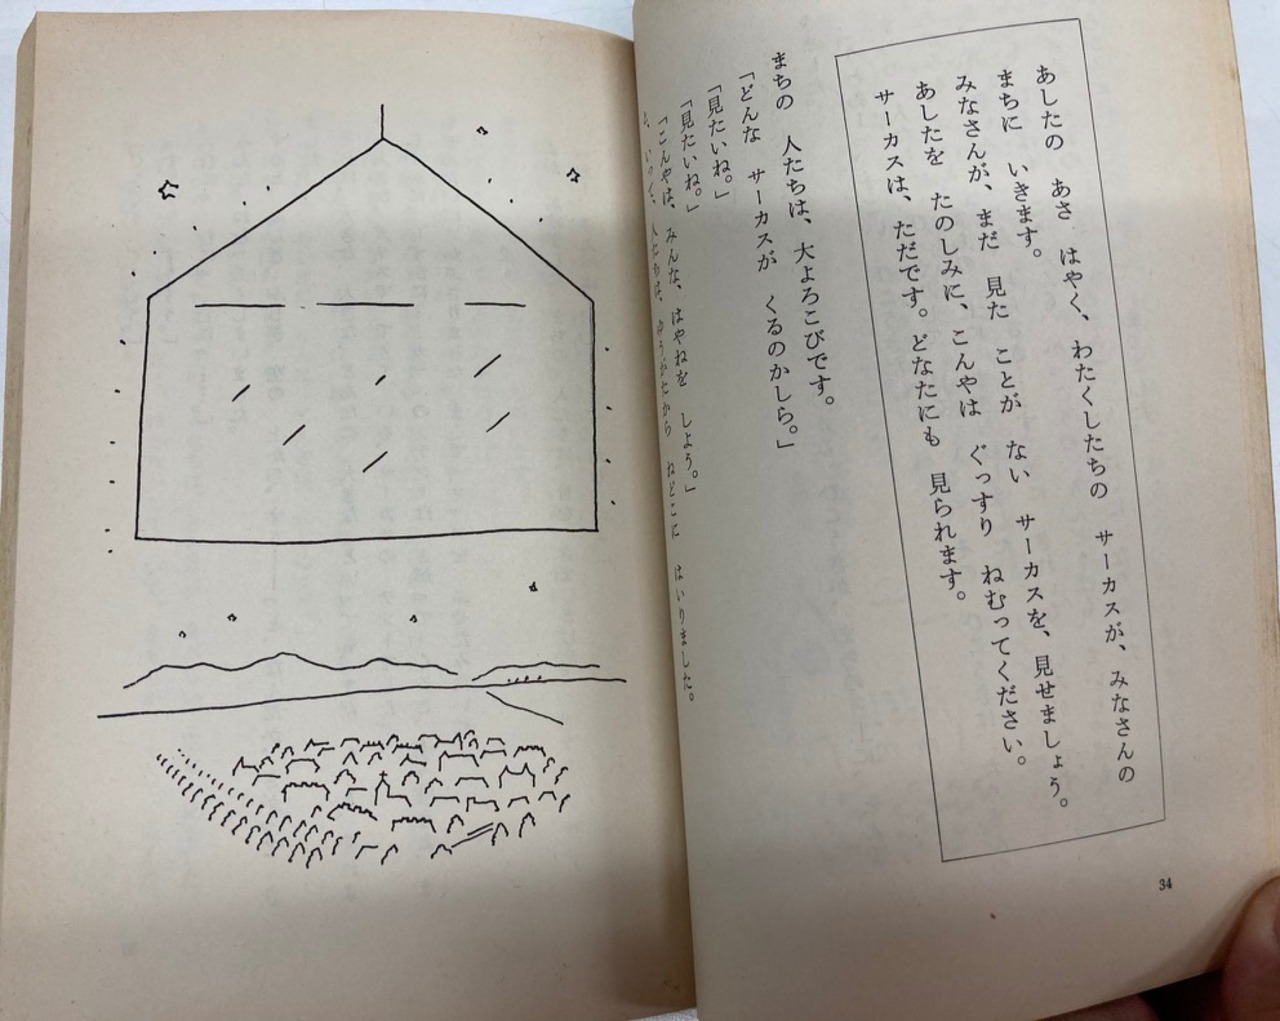 あしたの　あさ　はやく、わたくしたちの　サーカスが、みなさんの
まちに　いきます。
みなさんが、まだ　見た　ことが　ない　サーカスを、見せましょう。
あしたを　たのしみに、こんやは　ぐっすり　ねむってください。
サーカスは、ただです。どなたにも　見られます。
まちの　人たちは、大よろこびです。
「どんな　サーカスが　くるのかしら。」
「見たいね。」
「見たいね。」
「こんやは、みんな、はやねを　しよう。」
人たちは、ゆうがたから　ねどこに　はいりました。
34